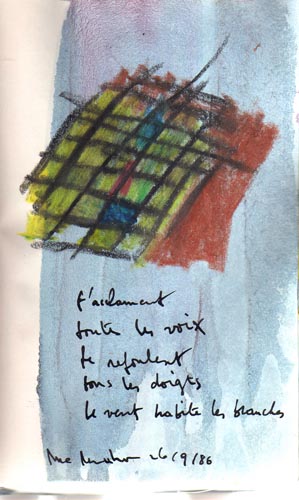 t'acclament
toutes les voix
te refoulent
tous les doigts
le vent habite les branches
26/9/86